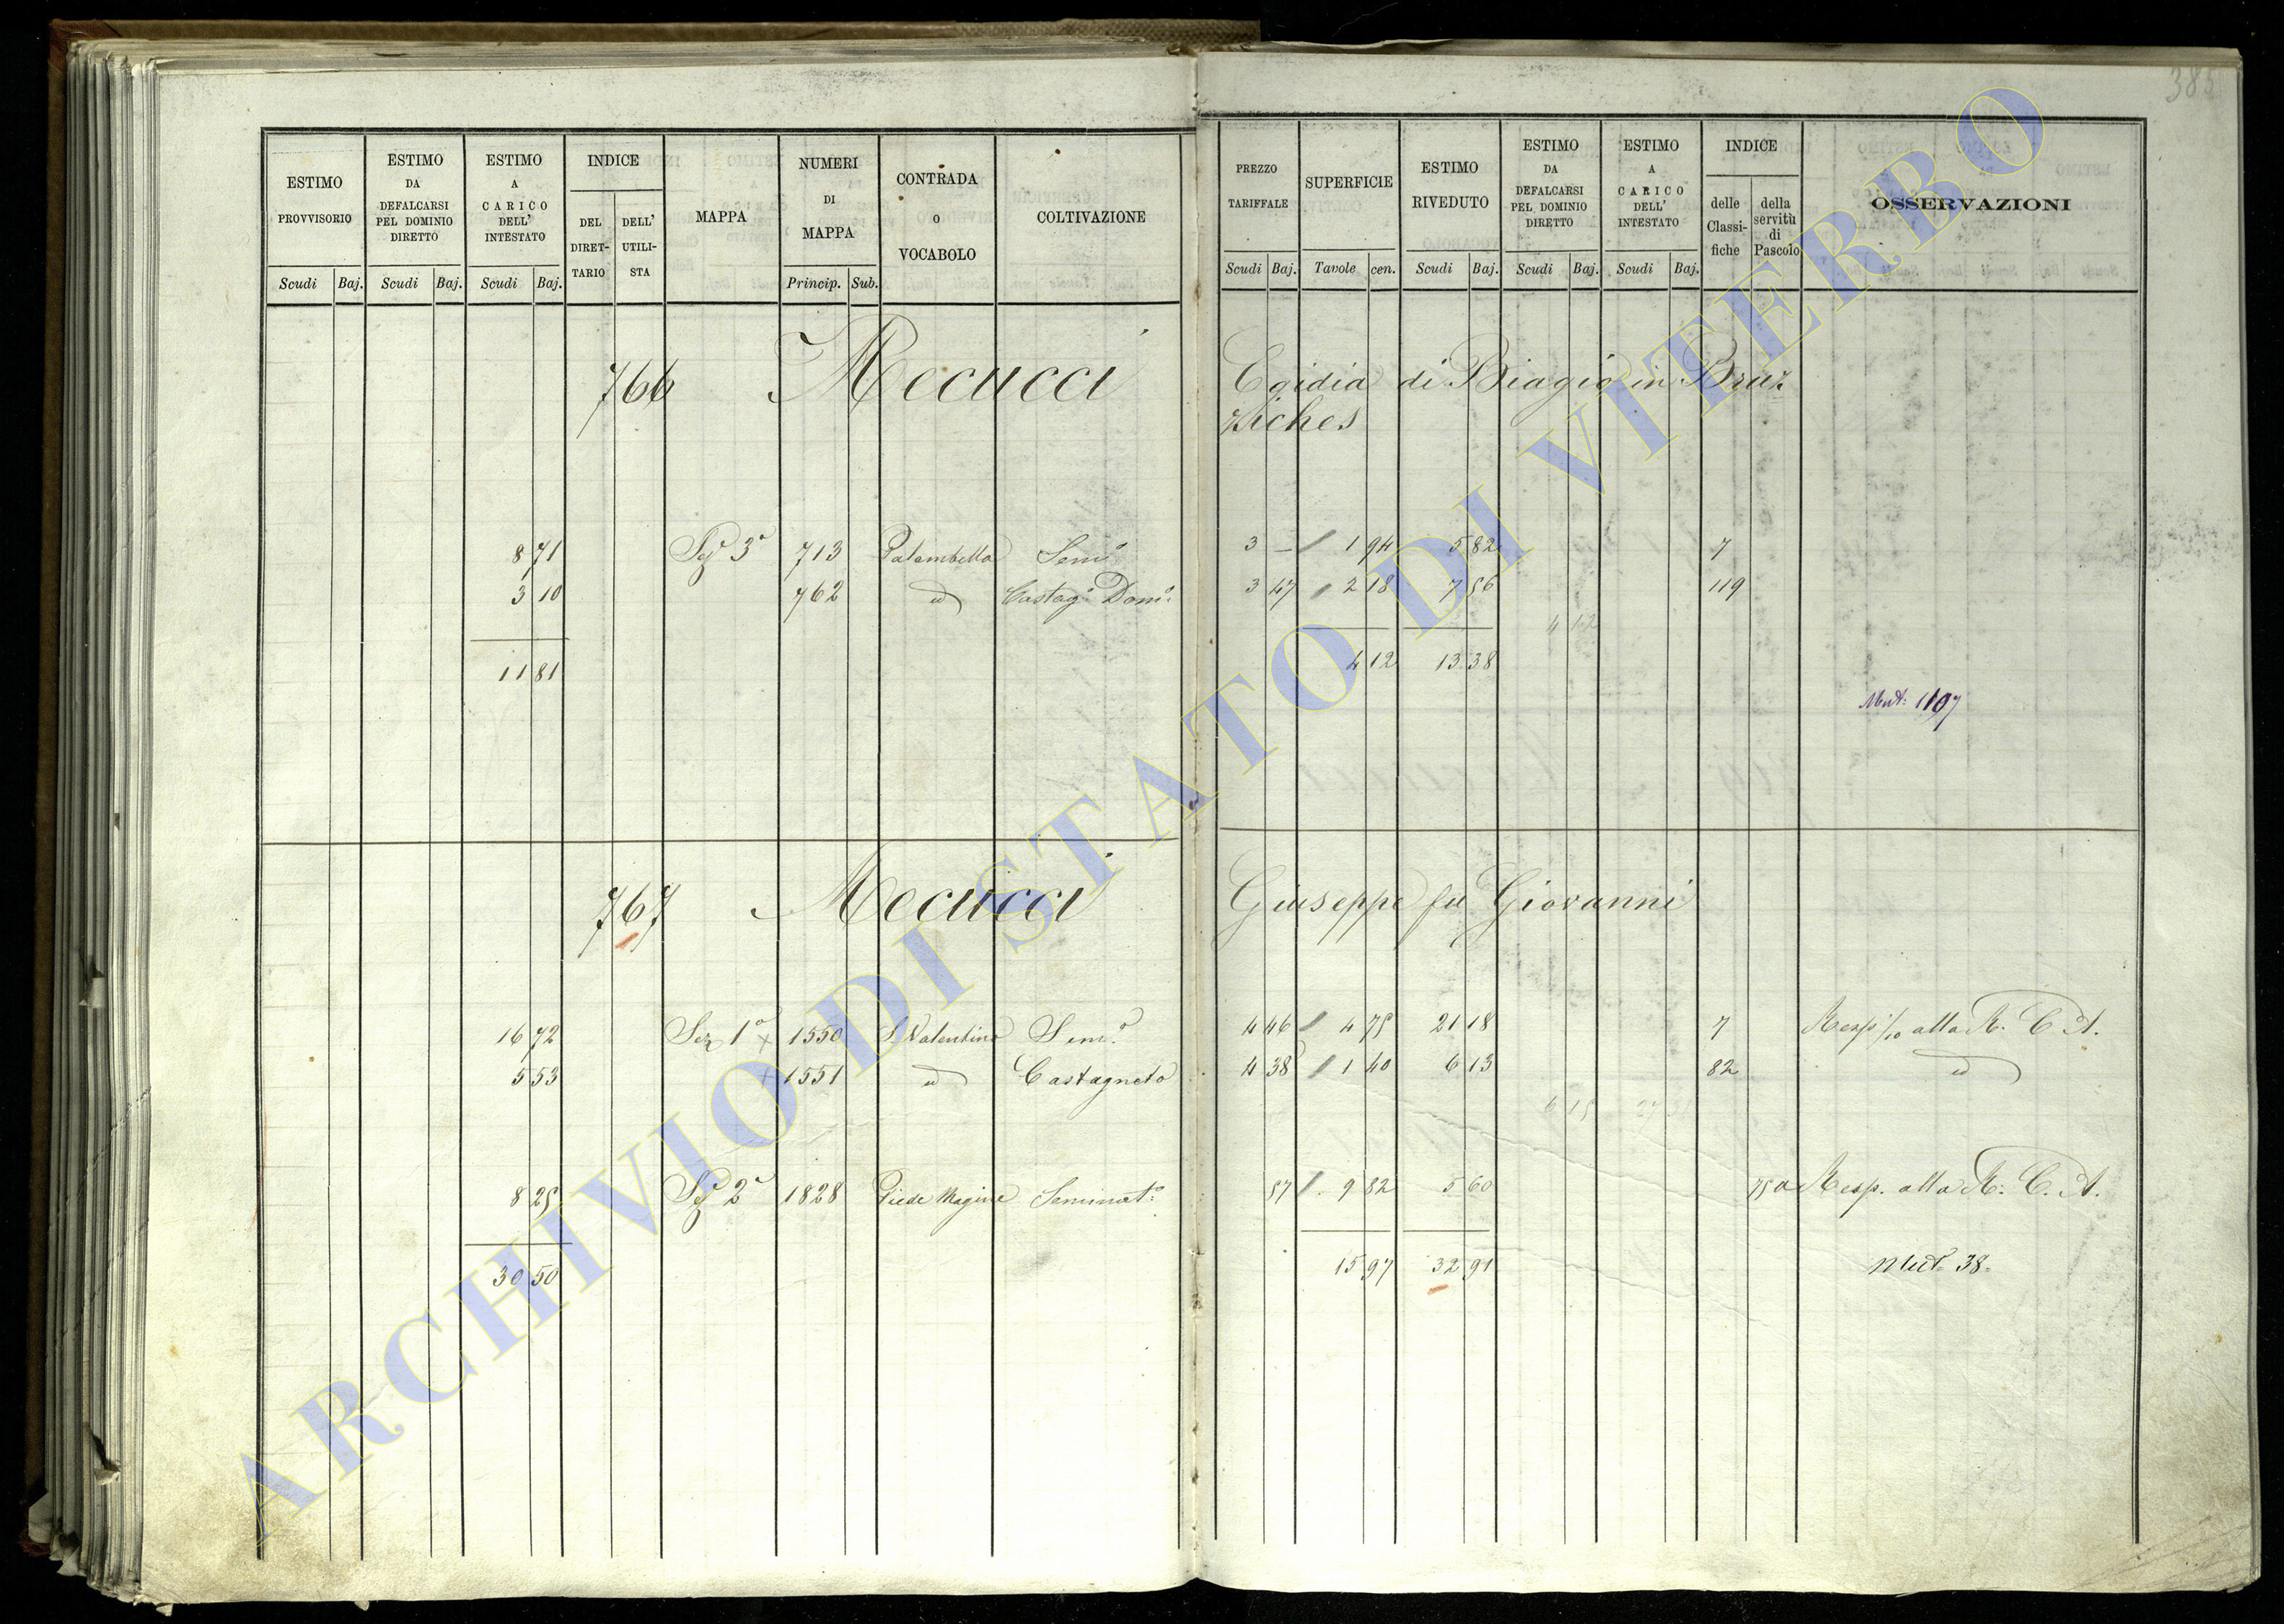 385
ESTIMO PROVVISORIO Scudi Baj.
ESTIMO DA DEFALCARSI PEL DOMINIO DIRETTO Scudi Baj.
ESTIMO A CARICO DELL' INTESTATO Scudi Baj.
INDICE DEL DIRET-TARIO DELL' UTILI-STA
MAPPA
NUMERI DI MAPPA Princip. Sub.
CONTRADA O VOCABOLO
COLTIVAZIONE
PREZZO TARIFFALE Scudi Baj.
SUPERFICIE Tavole cen.
ESTIMO RIVEDUTO Scudi Baj.
ESTIMO DA DEFALCARSI PEL DOMINIO DIRETTO Scudi Baj.
ESTIMO A CARICO DELL' INTESTATO Scudi Baj.
INDICE delle Classi-fiche della servitù di Pascolo
OSSERVAZIONI
766 Mecucci Egidia di Biagio in Bruz
ziches
8 71 Sez 3ª 713 Palombella Sem.º 3 — 1 94 5 82 7
3 10 762 id Castag.º Dom.º 3 47 2 18 7 56 119
4 12
11 81 4 12 13 38
Mut: 1107
767 Mecucci Giuseppe fu Giovanni
16 72 Sez 1ª × 1550 S. Valentino Sem.º 4 46 4 75 21 18 7 Resp 1/10 alla R. C. A.
5 53 × 1551 id Castagneto 4 38 1 40 6 13 82 id
6 15 27
8 25 Sez 2ª 1828 Piede Magine Seminat.º 57 9 82 5 60 750 Resp. alla R. C. A.
30 50 15 97 32 91 Mut. 38.
ARCHIVIO DI STATO DI VITERBO